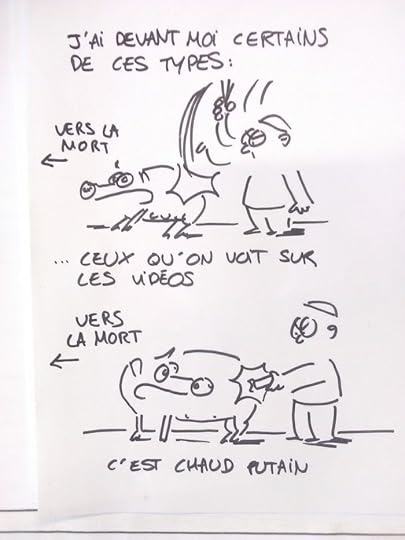 J'AI DEVANT MOI CERTAINS
DE CES TYPES :
VERS LA
MORT
... CEUX QU'ON VOIT SUR
LES VIDÉOS
VERS
LA MORT
C'EST CHAUD PUTAIN